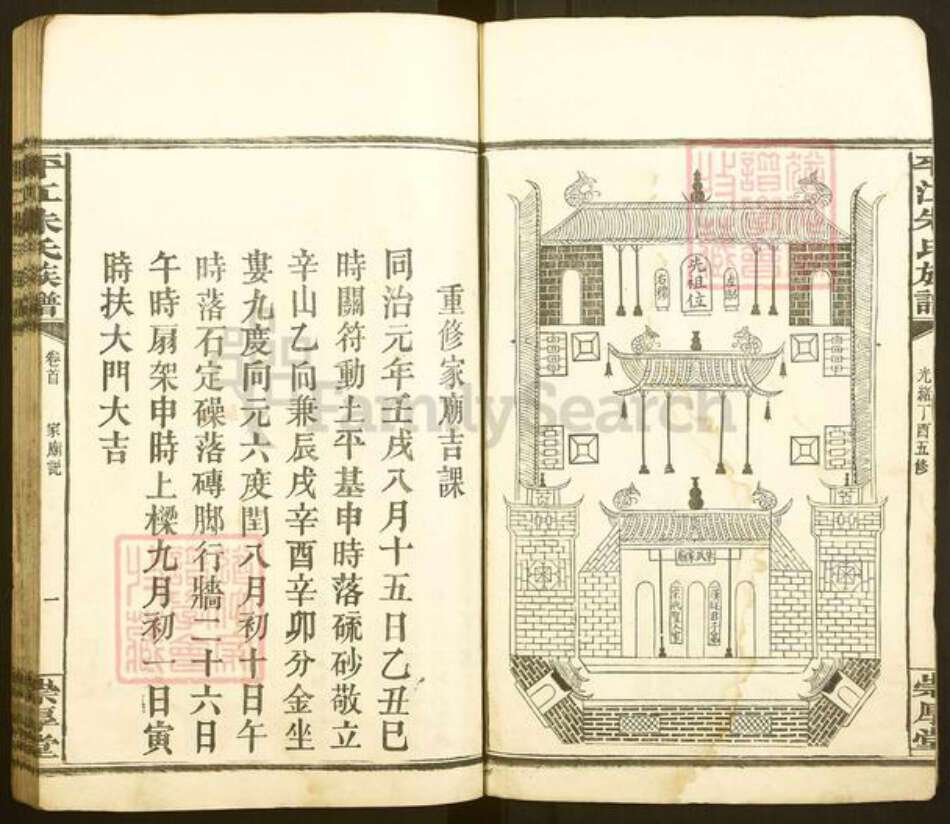 平江朱氏族譜
光緒丁酉五修
崇厚堂
先祖位
左昭
右穆
朱氏家廟
漢廷君子第
宋代聖人家
平江朱氏族譜
卷首
家廟説
一
崇厚堂
重修家廟吉課
同治元年壬戌八月十五日乙丑巳
時關符動土平基申時落硫砂敬立
辛山乙向兼辰戌辛酉辛卯分金坐
婁九度向元六度閏八月初十日午
時落石定磉落磚脚行牆二十六日
午時扇架申時上樑九月初一日寅
時扶大門大吉
FamilySearch